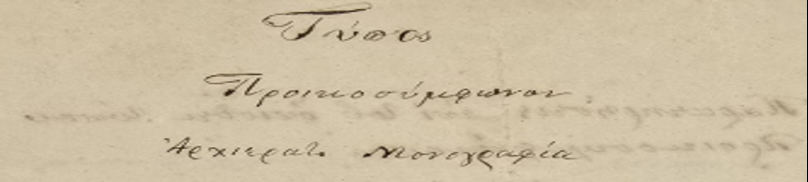 Τύπος
Προικοσύμφωνον
Ἀρχιερατ. Μονογραφία